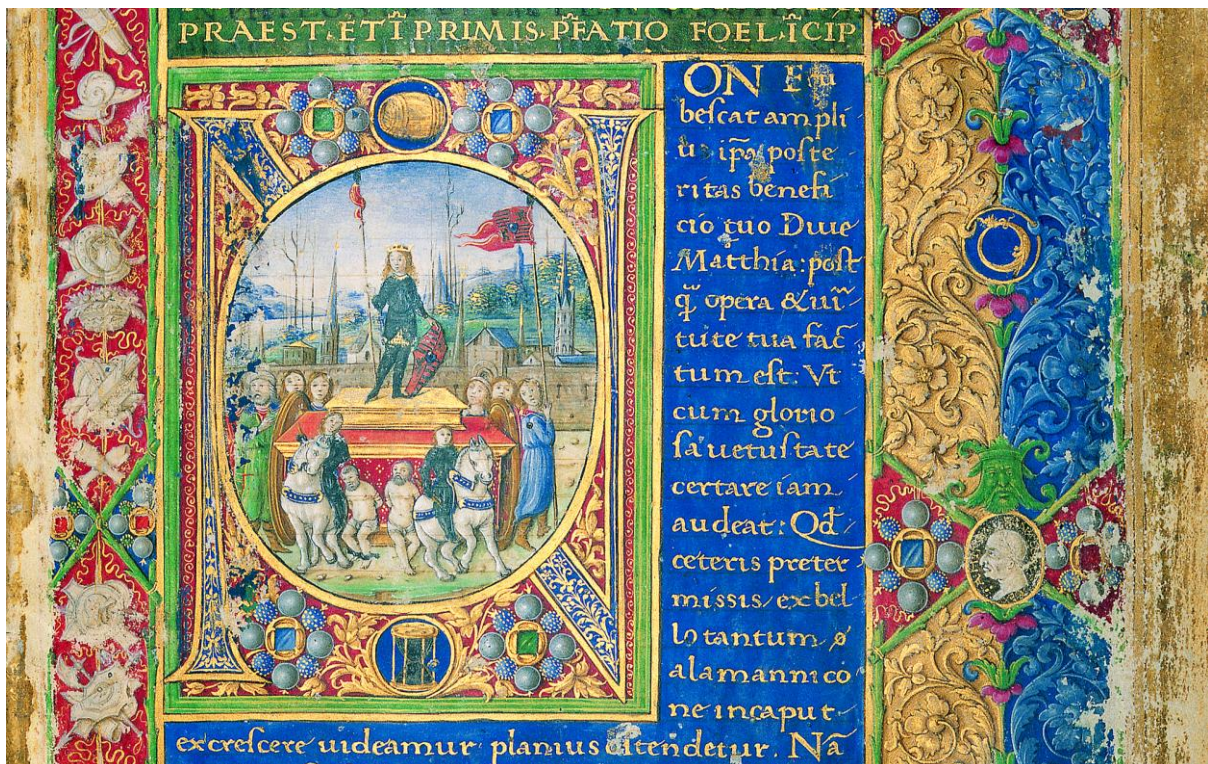 PRAEST·ET T̃ PRIMIS·PF̃ATIO FOEL·ĨCIP
NON
beſcat ampli
ip̃a poſte
ritas benefi
cio tuo Diue
Matthia: poſt
q̃ opera & uir̃
tute tua fac̃
tum eſt: Vt
cum glorio
ſa uetuſtate
certare iam
audeat: Qd̃
ceteris preter
miſſis, ex bel
lo tantum
alamannico
ne in caput
excreſcere uideamur planius oſtendetur. Nã